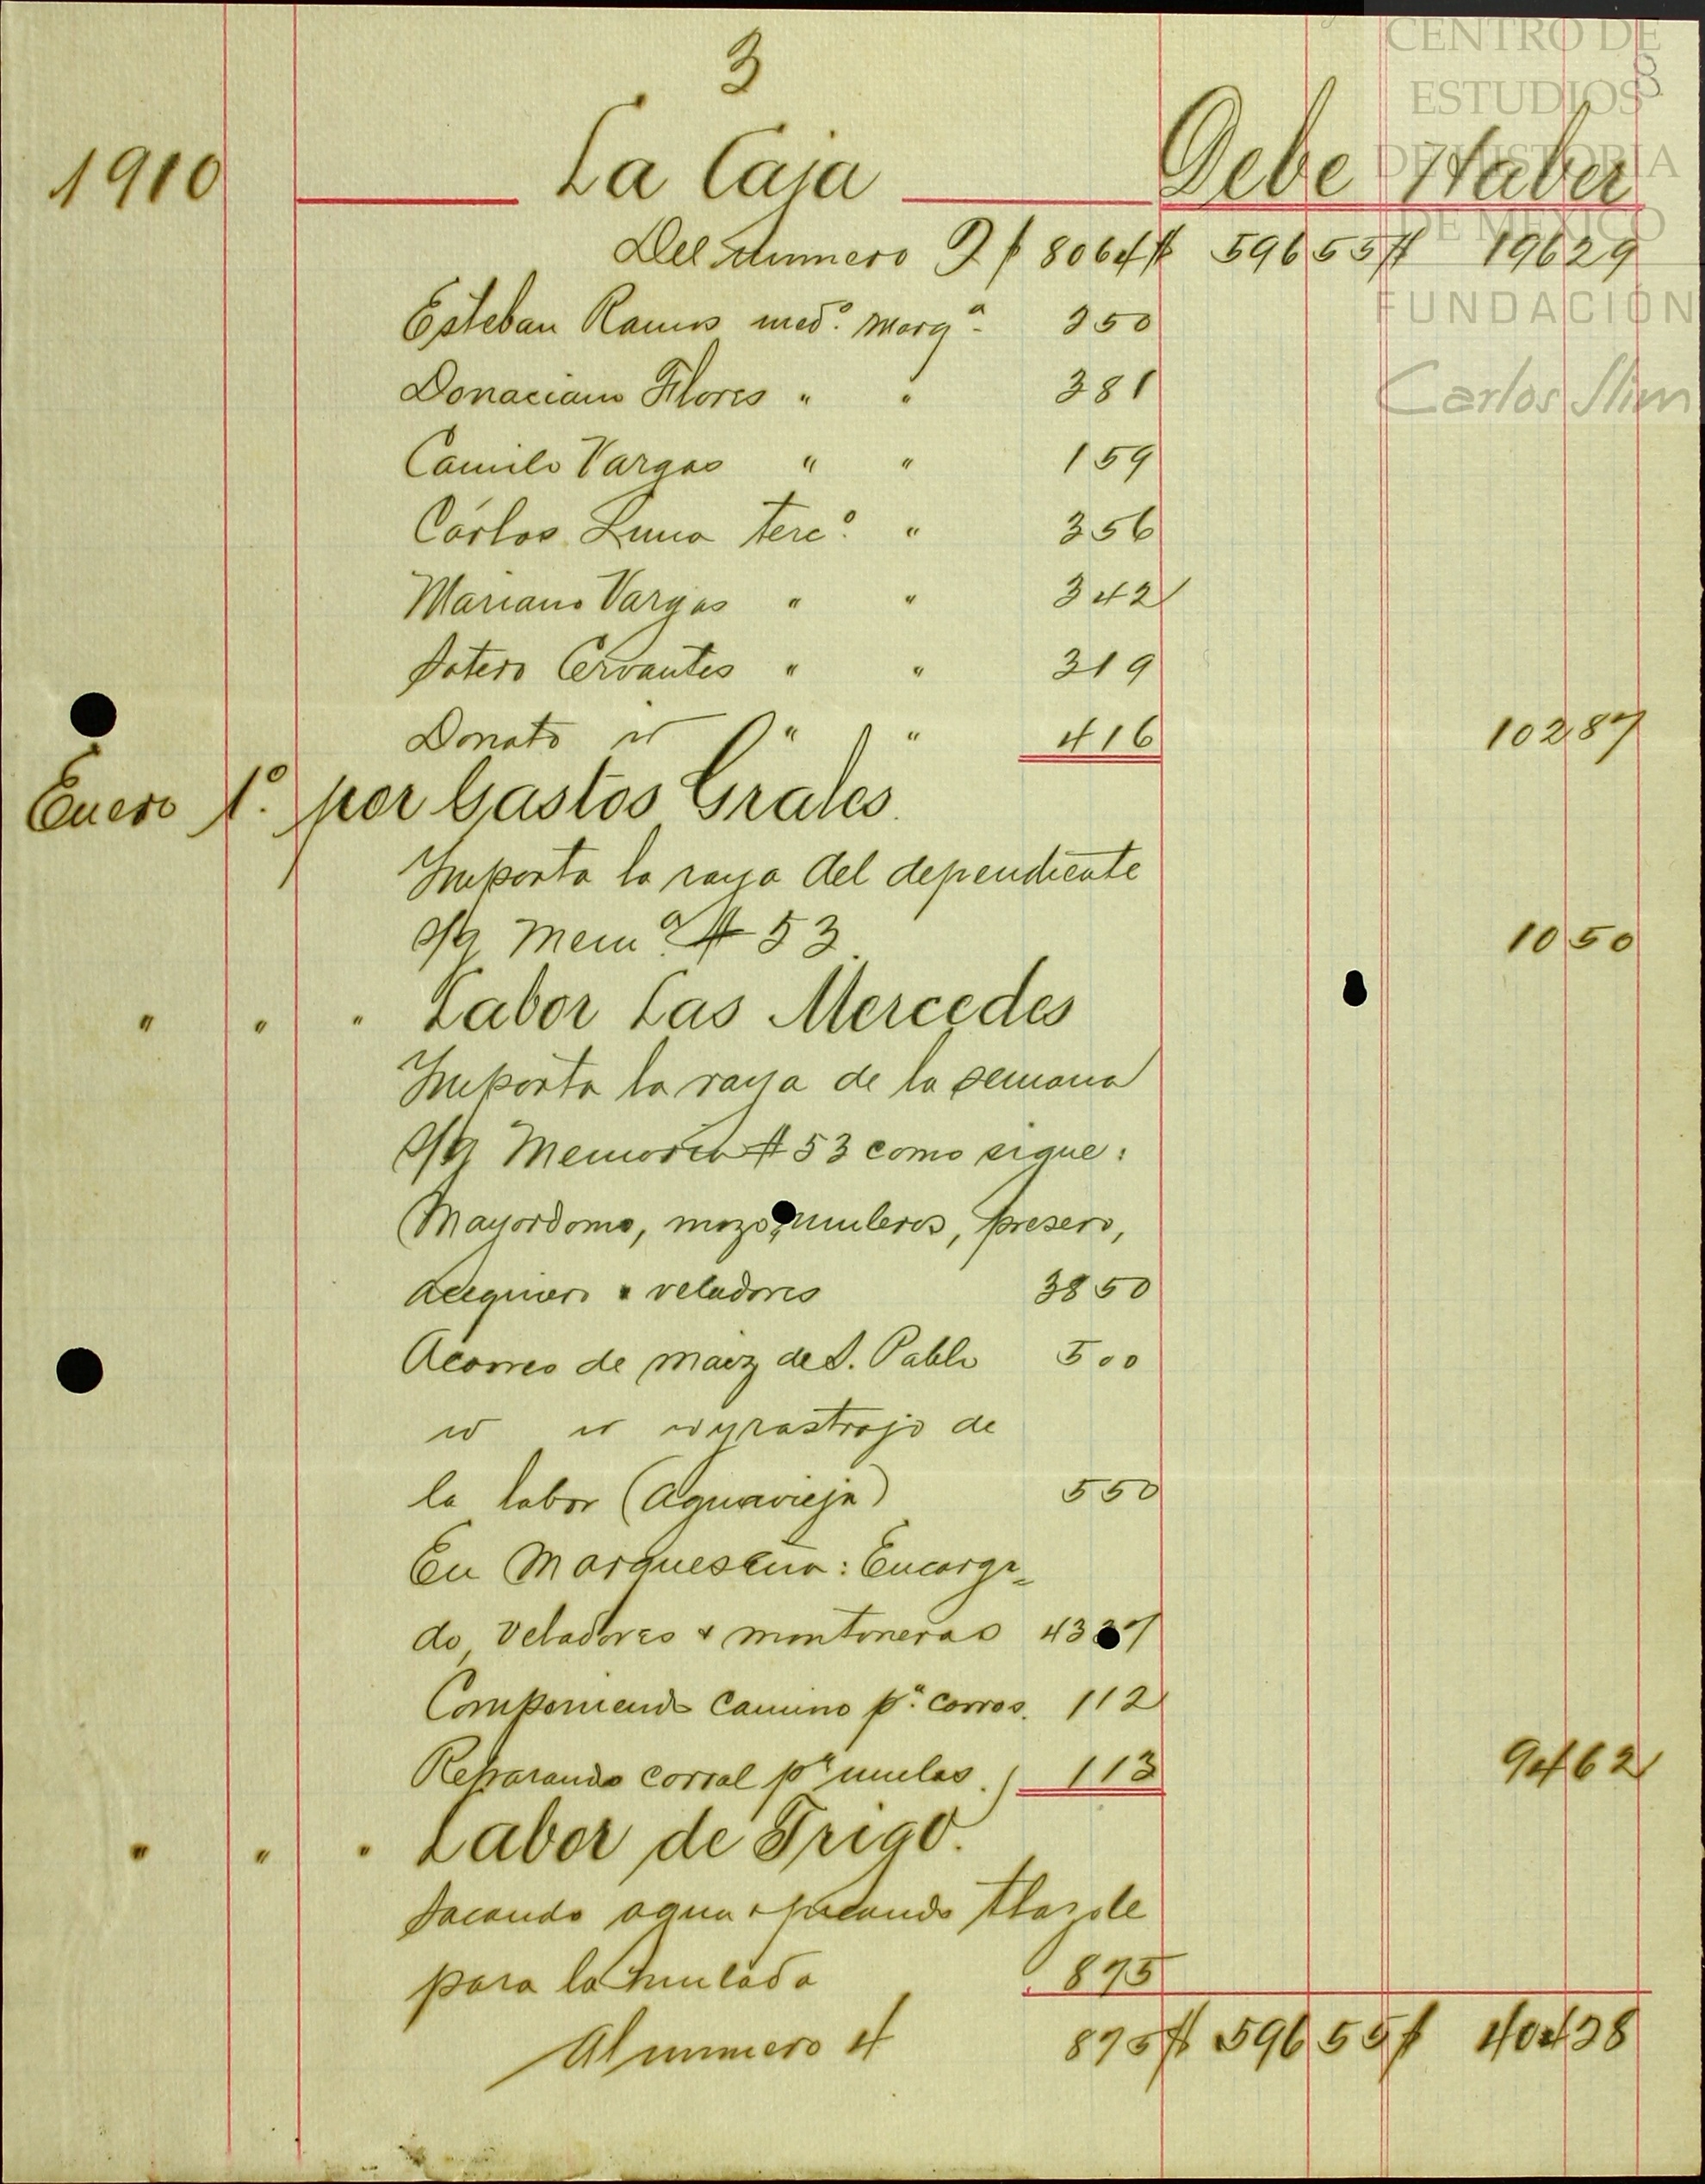 3
CENTRO DE
ESTUDIOS
DE HISTORIA
DE MEXICO
FUNDACIÓN
Carlos Slim
8
1910 La Caja Debe Haber
Del número 2 $ 8064 $ 59655 $ 19629
Esteban Ramos med.º Marq.ª 250
Donaciano Flores " " 381
Camilo Vargas " " 159
Cárlos Luna terc.º " 356
Mariano Vargas " " 342
Sotero Cervantes " " 319
Donato id " " 416 10287
Enero 1.º por Gastos Grales.
Importa la raya del dependiente
s/q Mem.ª # 53. 1050
" " " Labor Las Mercedes
Importa la raya de la semana
s/q Memoria # 53 como sigue:
Mayordomo, mozo, muleros, presero,
acequiero & veladores 3850
Acarreo de maíz de S. Pablo 500
id id id y rastrojo de
la labor (Aguavieja) 550
En Marqueseña: Encarga=
do, veladores & montoneras 4337
Componiendo camino p.ª carros. 112
Reparando corral pª mulas. 113 9462
" " " Labor de Trigo.
Sacando agua & picando tlazole
para la mulada 875
Al número 4 875 $ 59655 $ 40428